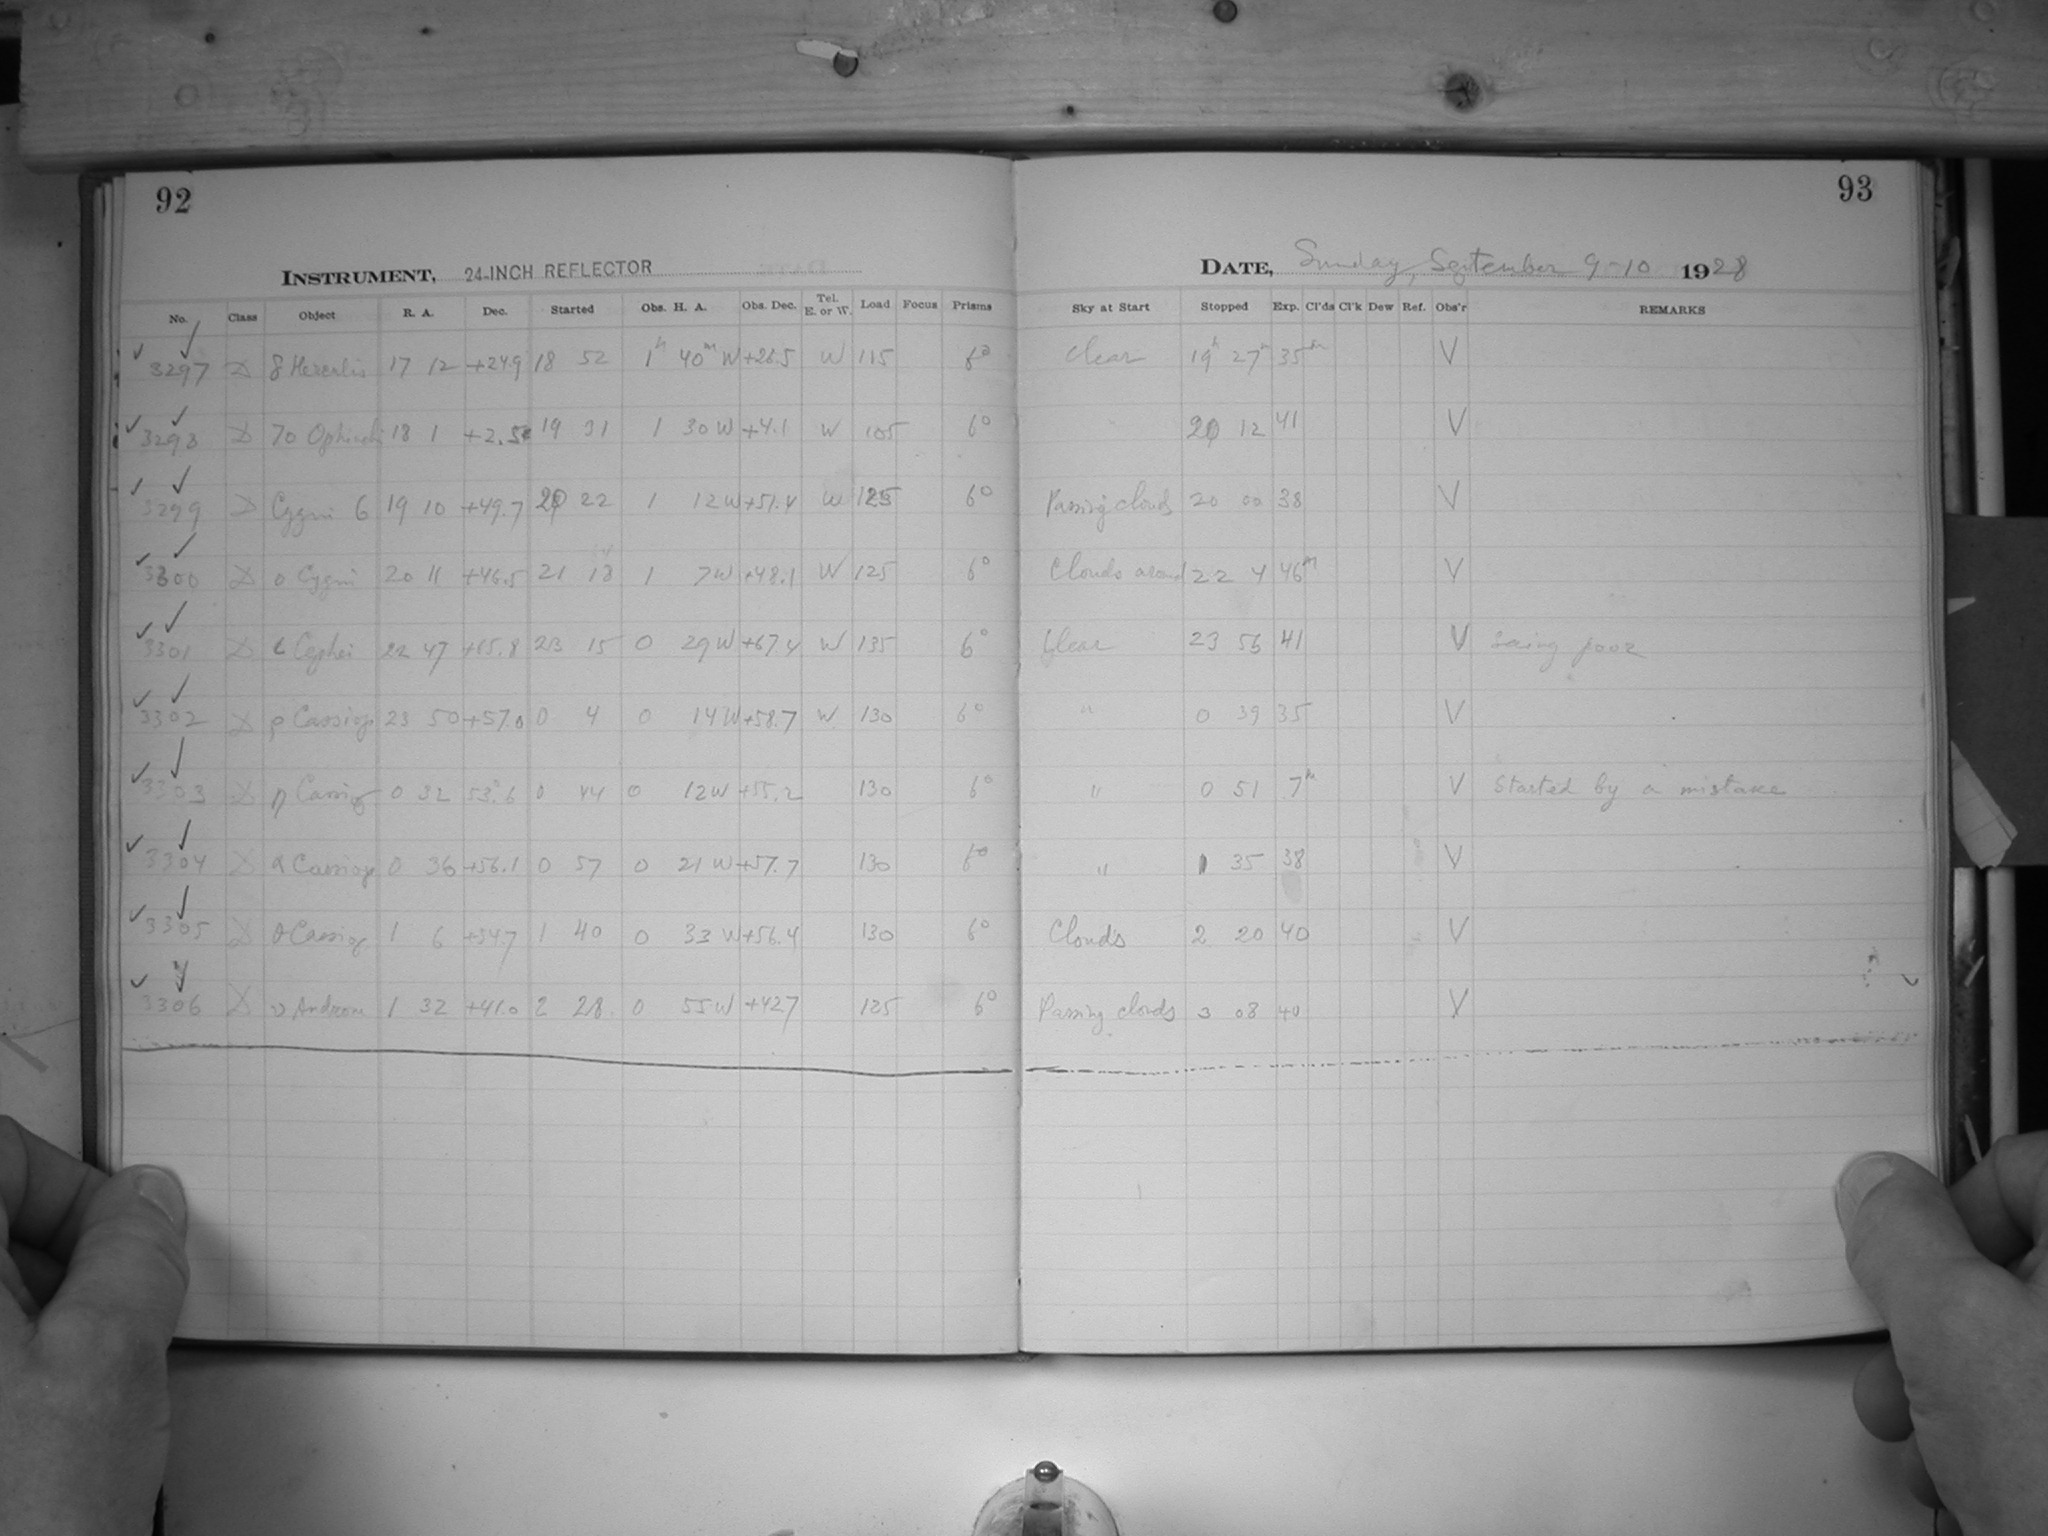 92
93
INSTRUMENT, 24-INCH REFLECTOR
DATE, Sunday, September 9-10 1928
No. Class Object R. A. Dec. Started Obs. H. A. Obs. Dec. Tel. E. or W. Load Focus Prisms Sky at Start Stopped Exp. Cl'ds Cl'k Dew Ref. Obs'r REMARKS
3297 D δ Herculis 17 12 +24.9 18 52 1h 40m W +26.5 W 115 6° Clear 19h 27m 35m V
3298 D 70 Ophiuchi 18 1 +2.5 19 31 1 30 W +4.1 W 105 6° 20 12 41 V
3299 D Cygni 6 19 10 +49.7 20 22 1 12 W +51.4 W 125 6° Passing clouds 20 00 38 V
3300 D o Cygni 20 11 +46.5 21 18 1 7 W +48.1 W 125 6° Clouds around 22 4 46m V
3301 D ι Cephei 22 47 +65.8 23 15 0 29 W +67.4 W 135 6° Clear 23 56 41 V seeing poor
3302 D ρ Cassiop 23 50 +57.0 0 4 0 14 W +58.7 W 130 6° " 0 39 35 V
3303 D η Cassiop 0 32 53.6 0 44 0 12 W +55.2 130 6° " 0 51 7m V Started by a mistake
3304 D α Cassiop 0 36 +56.1 0 57 0 21 W +57.7 130 6° " 1 35 38 V
3305 D θ Cassiop 1 6 +54.7 1 40 0 33 W +56.4 130 6° Clouds 2 20 40 V
3306 D υ Androm 1 32 +41.0 2 28 0 55 W +42.7 125 6° Passing clouds 3 08 40 V